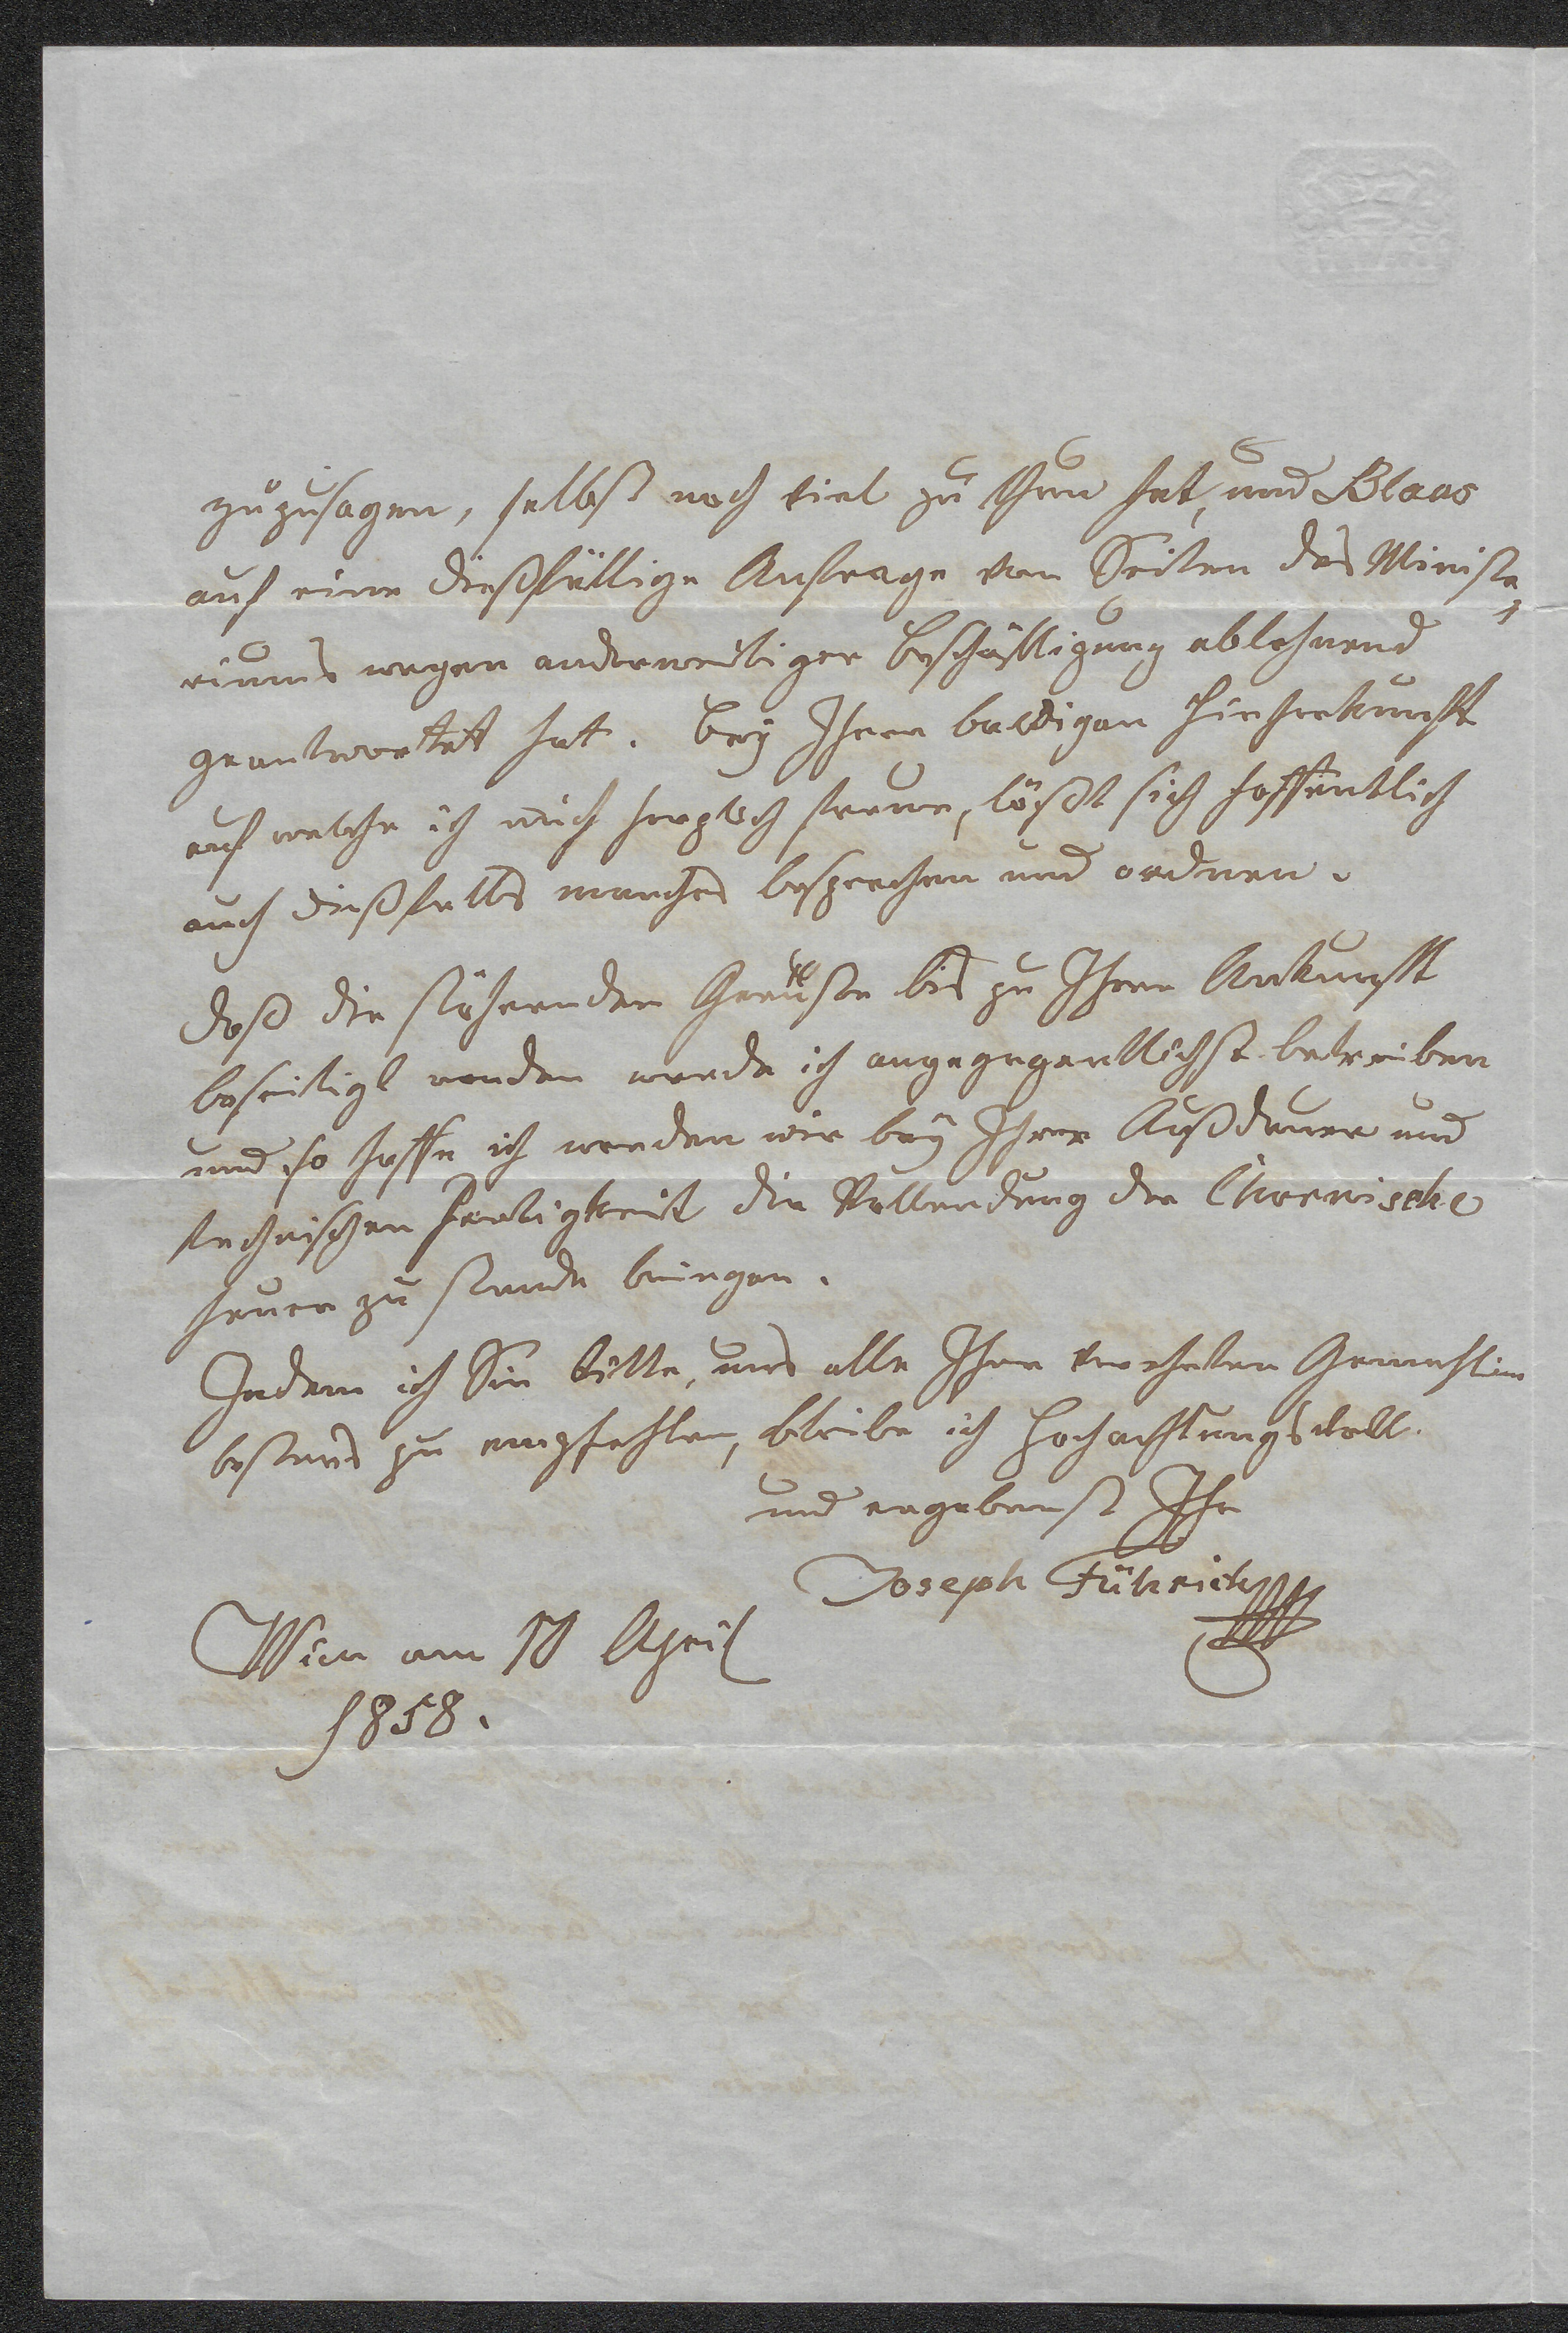 zuzusagen, selbst noch viel zu thun hat, und Blaas
auf eine dießfällige Anfrage von Seiten des Ministe,
riums wegen anderweitiger Beschäftigung ablehnend
geantwortet hat. Bey Ihrer baldigen Hieherkunft
auf welche ich mich herzlich freue, läßt sich hoffentlich
auch dießfalls manches besprechen und ordnen.
Daß die stöhrenden Gerüste bis zu Ihrer Ankunft
beseitigt werden werde ich angegegentlichst betreiben
und so hoffe ich werden wir bey Ihrer Außdauer und
technischen Fertigkeit die Vollendung der Chornische
heuer zu stande bringen.
Indem ich Sie bitte, uns alle Ihrer verehrten Gemahlin
bestens zu empfehlen, bleibe ich Hochachtungsvoll
und ergebenst Ihr
Joseph Führich
Wien am April
1858.